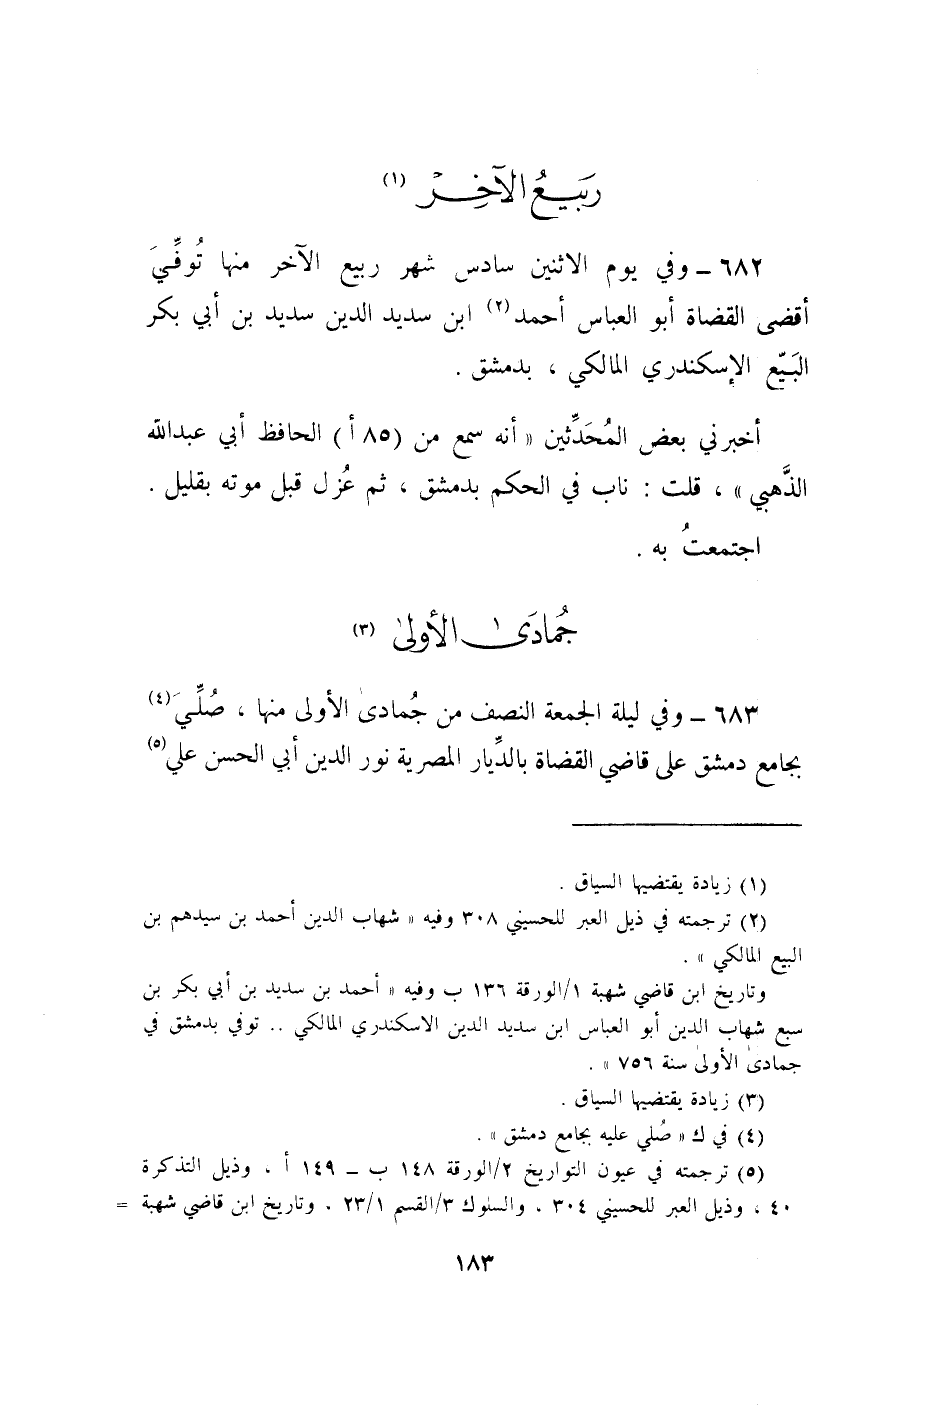 رَبيعُ الآخِر (١)
٦٨٢ ــ وفي يوم الاثنين سادس شهر ربيع الآخر منها تُوفِّيَ
أقضى القضاة أبو العباس أحمد(٢) ابن سديد الدين سديد بن أبي بكر
البَيّع الإسكندري المالكي ، بدمشق .
أخبرني بعض المُحَدِّثين « أنه سمع من (٨٥ أ) الحافظ أبي عبدالله
الذَّهبي » ، قلت : ناب في الحكم بدمشق ، ثم عُزل قبل موته بقليل .
اجتمعتُ به .
جُمادَىٰ الأولىٰ (٣)
٦٨٣ ــ وفي ليلة الجمعة النصف من جُمادىٰ الأولى منها ، صُلِّيَ(٤)
بجامع دمشق على قاضي القضاة بالدِّيار المصرية نور الدين أبي الحسن علي(٥)
(١) زيادة يقتضيها السياق .
(٢) ترجمته في ذيل العبر للحسيني ٣٠٨ وفيه « شهاب الدين أحمد بن سيدهم بن
البيع المالكي » .
وتاريخ ابن قاضي شهبة ١/الورقة ١٣٦ ب وفيه « أحمد بن سديد بن أبي بكر بن
سبع شهاب الدين أبو العباس ابن سديد الدين الاسكندري المالكي .. توفي بدمشق في
جمادىٰ الأولىٰ سنة ٧٥٦ » .
(٣) زيادة يقتضيها السياق .
(٤) في ك « صُلي عليه بجامع دمشق » .
(٥) ترجمته في عيون التواريخ ٢/الورقة ١٤٨ ب ــ ١٤٩ أ ، وذيل التذكرة
٤٠ ، وذيل العبر للحسيني ٣٠٤ ، والسلوك ٣/القسم ٢٣/١ ، وتاريخ ابن قاضي شهبة =
١٨٣